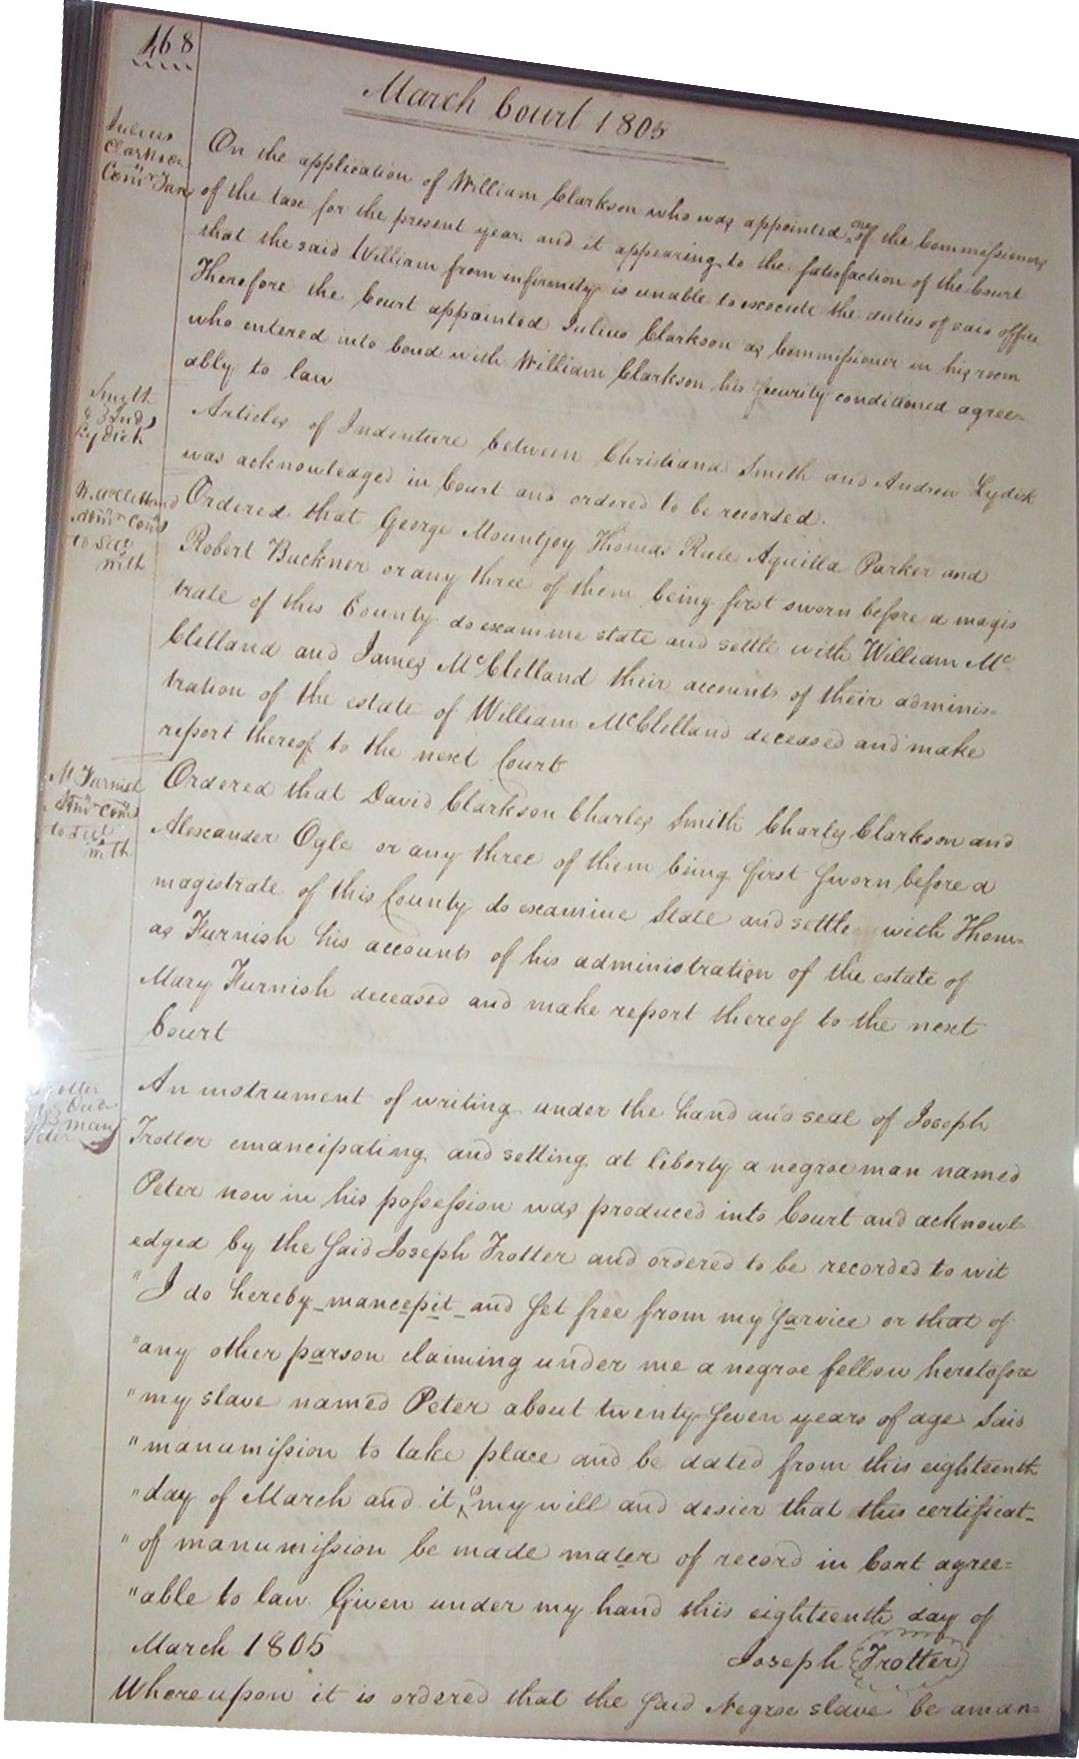 468
March Court 1805
Julius
Clarkson
Com.r Tax
On the application of William Clarkson who was appointed one of the Commissioners
of the tax for the present year and it appearing to the satisfaction of the Court
that the said William from infirmity is unable to execute the duties of said office
Therefore the Court appointed Julius Clarkson as Commissioner in his room
who entered into bond with William Clarkson his security conditioned agree=
ably to law
Smith
& Ind.
Lydick
Articles of Indenture between Christiana Smith and Andrew Lydick
was acknowledged in Court and ordered to be recorded.
McClelland
adm.r Com.s
to settle
with
Ordered that George Mountjoy Thomas Rule Aquilla Parker and
Robert Buckner or any three of them being first sworn before a magis
trate of this County do examine state and settle with William Mc
Clelland and James McClelland their accounts of their adminis=
tration of the estate of William McClelland deceased and make
report thereof to the next Court
M Furnish
Adm.r Com.s
to settle
with
Ordered that David Clarkson Charles Smith Charles Clarkson and
Alexander Ogle or any three of them being first sworn before a
magistrate of this County do examine State and settle with Thom=
as Furnish his accounts of his administration of the estate of
Mary Furnish deceased and make report thereof to the next
Court
An instrument of writing under the hand and seal of Joseph
Trotter emancipating and setting at liberty a negroe man named
Peter now in his possession was produced into Court and acknowl
edged by the said Joseph Trotter and ordered to be recorded to wit
"I do hereby mancepit and set free from my sarvice or that of
"any other parson claiming under me a negroe fellow heretofore
"my slave named Peter about twenty seven years of age said
"manumission to take place and be dated from this eighteenth
"day of March and it is my will and desier that this certificat=
"of manumission be made mater of record in Cort agree=
"able to law Given under my hand this eighteenth day of
March 1805
Joseph Trotter
Whereupon it is ordered that the said Negroe slave be aman=